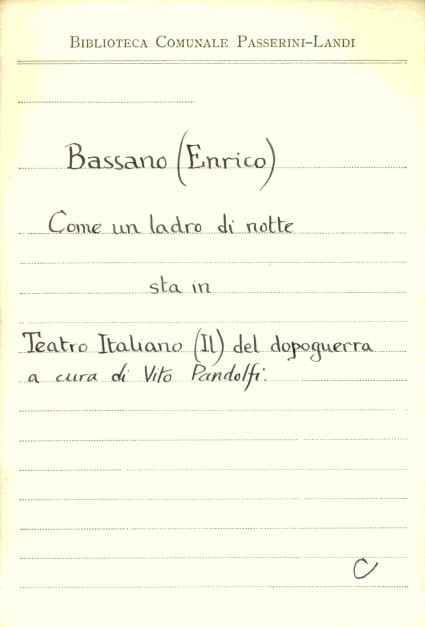 BIBLIOTECA COMUNALE PASSERINI-LANDI
Bassano (Enrico)
Come un ladro di notte
sta in
Teatro Italiano (Il) del dopoguerra
a cura di Vito Pandolfi.
C